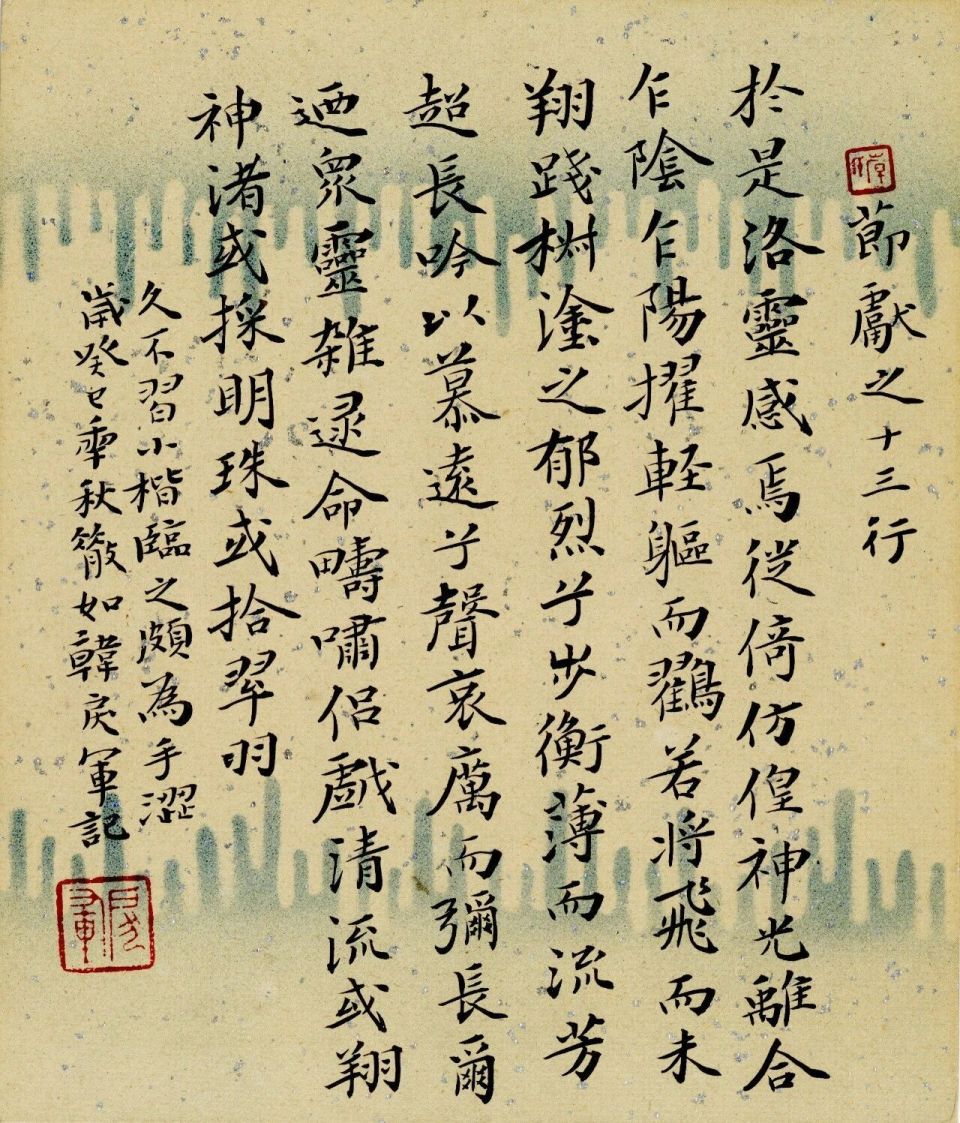 節獻之十三行
於是洛靈感焉徙倚仿偟神光離合
乍陰乍陽擢輕軀而鶴若將飛而未
翔踐椒塗之郁烈兮步衡薄而流芳
超長吟以慕遠兮聲哀厲而彌長爾
迺眾靈雜遝命疇嘯侶戲清流或翔
神渚或採明珠或拾翠羽
久不習小楷臨之頗為手澀
歲癸巳季秋籢如韓戾軍記